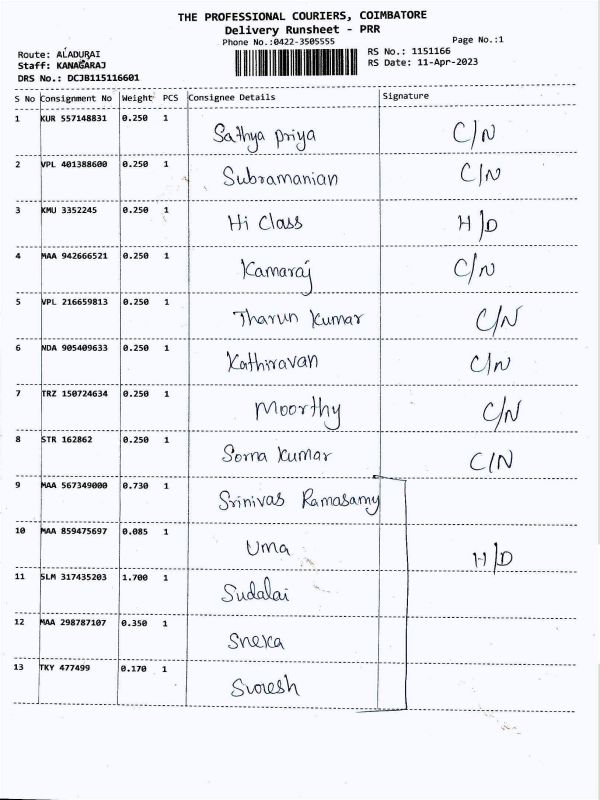 THE PROFESSIONAL COURIERS, COIMBATORE
Delivery Runsheet - PRR
Phone No.:0422-3505555 Page No.:1
Route: ALADURAI RS No.: 1151166
Staff: KANAGARAJ RS Date: 11-Apr-2023
DRS No.: DCJB115116601
S No Consignment No Weight PCS Consignee Details Signature
1 KUR 557148831 0.250 1 Sathya priya C/N
2 VPL 401388600 0.250 1 Subramanian C/N
3 KMU 3352245 0.250 1 Hi Class H/D
4 MAA 942666521 0.250 1 Kamaraj C/N
5 VPL 216659813 0.250 1 Tharun Kumar C/N
6 NDA 905409633 0.250 1 Kathiravan C/N
7 TRZ 150724634 0.250 1 Moorthy C/N
8 STR 162862 0.250 1 Soma Kumar C/N
9 MAA 567349000 0.730 1 Srinivas Ramasamy
10 MAA 859475697 0.085 1 Uma H/D
11 SLM 317435203 1.700 1 Sudalai
12 MAA 298787107 0.350 1 Sneka
13 TKY 477499 0.170 1 Suresh